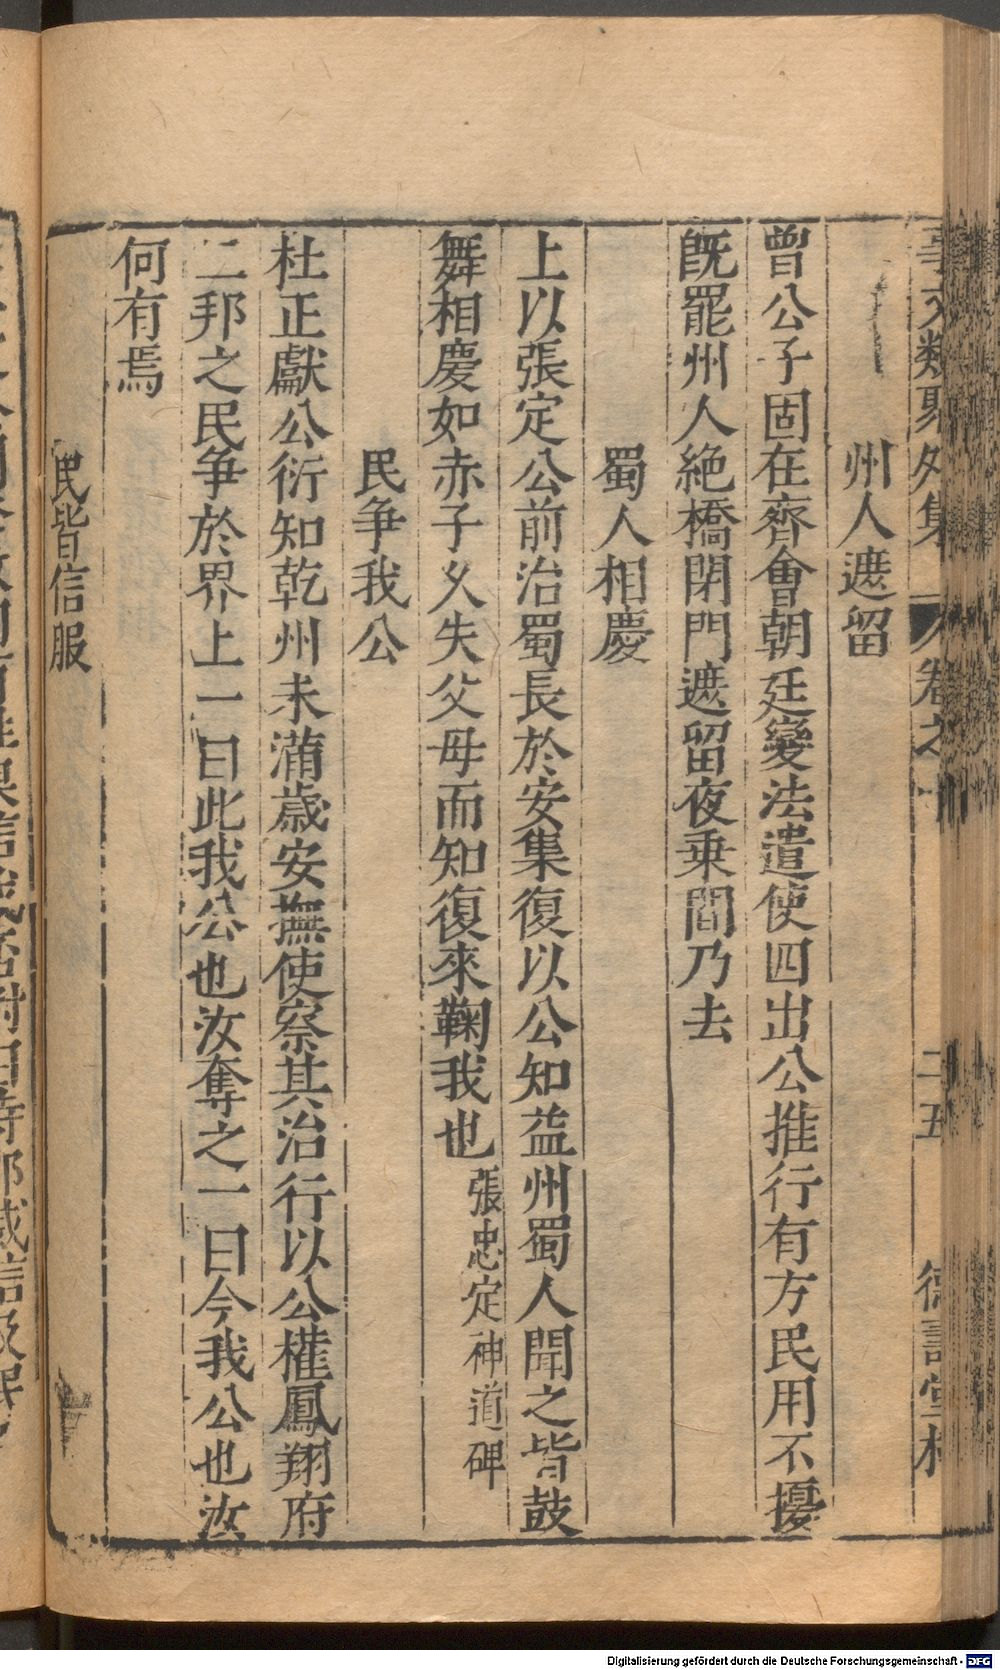 事文類聚外集 卷之十 二五 德壽堂梓
州人遮留
曾公子固在齊會朝廷變法遣使四出公推行有方民用不擾
旣罷州人絶橋閉門遮留夜乗間乃去
蜀人相慶
上以張定公前治蜀長於安集復以公知益州蜀人聞之皆鼓
舞相慶如赤子乆失父母而知復來鞠我也 張忠定神道碑
民爭我公
杜正獻公衍知乾州未滿歲安撫使察其治行以公權鳳翔府
二邦之民爭於界上一曰此我公也汝奪之一曰今我公也汝
何有焉
民皆信服
Digitalisierung gefördert durch die Deutsche Forschungsgemeinschaft - DFG